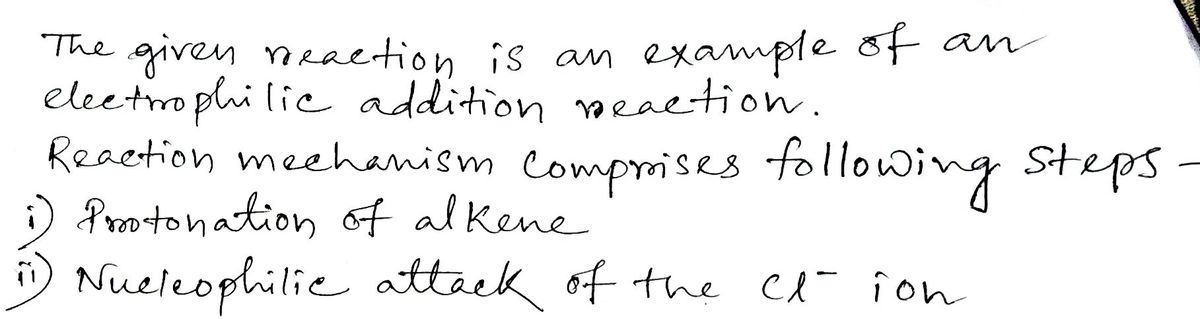 The given reaction is an example of an
electrophilic addition reaction.
Reaction mechanism comprises following steps -
i) Protonation of alkene
ii) Nucleophilic attack of the Cl⁻ ion